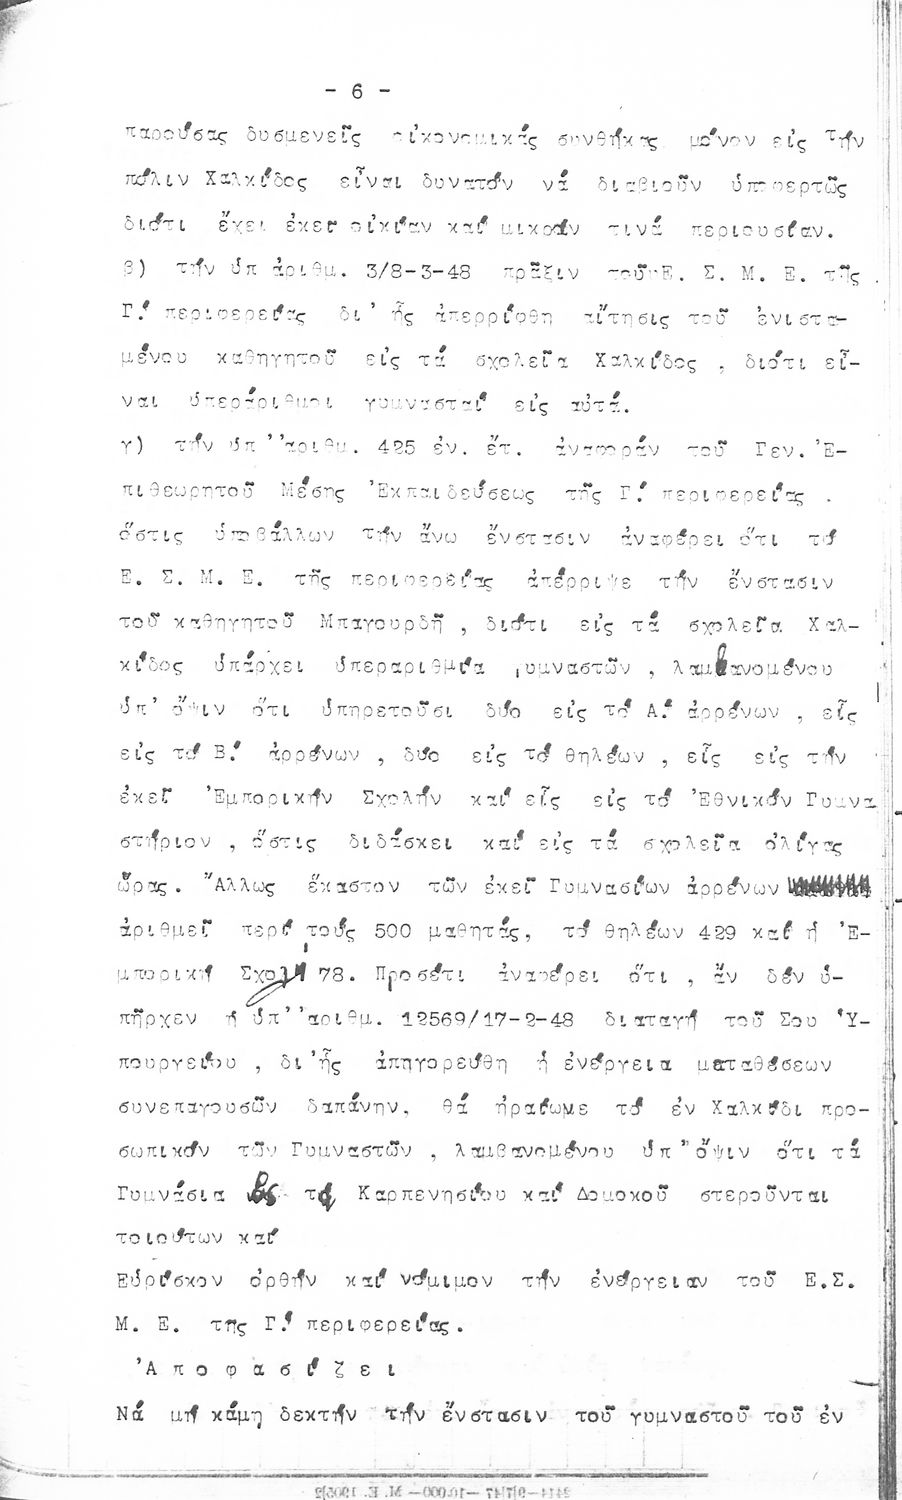 - 6 -
παρούσας δυσμενεῖς οἰκονομικάς συνθήκας μόνον εἰς τήν
πόλιν Χαλκίδος εἶναι δυνατόν νά διαβιοῦν ὑποφερτῶς
διότι ἔχει ἐκεῖ οἰκίαν καί μικράν τινά περιουσίαν.
β) τήν ὑπ ἀριθμ. 3/8-3-48 πρᾶξιν τοῦ Ε. Σ. Μ. Ε. τῆς
Γ.' περιφερείας δι' ἧς ἀπερρίφθη αἴτησις τοῦ ἐνιστα-
μένου καθηγητοῦ εἰς τά σχολεῖα Χαλκίδος , διότι εἶ-
ναι ὑπεράριθμοι γυμνασταί εἰς αὐτά.
γ) τήν ὑπ' 'αριθμ. 425 ἐν. ἔτ. ἀναφοράν τοῦ Γεν. 'Ε-
πιθεωρητοῦ Μέσης 'Εκπαιδεύσεως τῆς Γ.' περιφερείας .
ὅστις ὑποβάλλων τήν ἄνω ἔνστασιν ἀναφέρει ὅτι τό
Ε. Σ. Μ. Ε. τῆς περιφερείας ἀπέρριψε τήν ἔνστασιν
τοῦ καθηγητοῦ Μπαγουρδῆ , διότι εἰς τά σχολεῖα Χαλ-
κίδος ὑπάρχει ὑπεραριθμία γυμναστῶν , λαμβανομένου
ὑπ' ὄψιν ὅτι ὑπηρετοῦσι δύο εἰς τό Α.' ἀρρένων , εἷς
εἰς τό Β.' ἀρρένων , δύο εἰς τό θηλέων , εἷς εἰς τήν
ἐκεῖ 'Εμπορικήν Σχολήν καί εἷς εἰς τό 'Εθνικόν Γυμνα
στήριον , ὅστις διδάσκει καί εἰς τά σχολεῖα ὀλίγας
ὥρας. "Αλλως ἕκαστον τῶν ἐκεῖ Γυμνασίων ἀρρένων
ἀριθμεῖ περί τούς 500 μαθητάς, τό θηλέων 429 καί ἡ 'Ε-
μπορική Σχολή 78. Προσέτι ἀναφέρει ὅτι , ἄν δέν ὑ-
πῆρχεν ἡ ὑπ' 'αριθμ. 12569/17-2-48 διαταγή τοῦ Σου 'Υ-
πουργείου , δι'ἧς ἀπηγορεύθη ἡ ἐνέργεια μεταθέσεων
συνεπαγουσῶν δαπάνην, θά ἠραίωμε τό ἐν Χαλκίδι προ-
σωπικόν τῶν Γυμναστῶν , λαμβανομένου ὑπ "ὄψιν ὅτι τά
Γυμνάσια τά Καρπενησίου καί Δομοκοῦ στεροῦνται
τοιούτων καί
Εὑρίσκον ὀρθήν καί νόμιμον τήν ἐνέργειαν τοῦ Ε.Σ.
Μ. Ε. της Γ.' περιφερείας.
'Α π ο φ α σ ί ζ ε ι
Νά μή κάμη δεκτήν τήν ἔνστασιν τοῦ γυμναστοῦ τοῦ ἐν
2414—9|7|47 —10.000— Μ. Ε. 1905|2